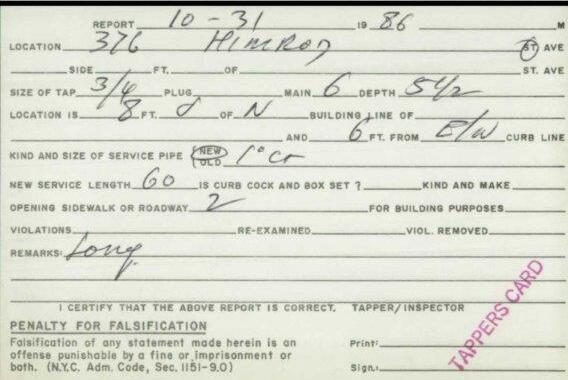 REPORT 10-31 1986 M
LOCATION 376 Himrod ST. AVE
SIDE FT. OF ST. AVE
SIZE OF TAP 3/4 PLUG MAIN 6 DEPTH 5 1/2
LOCATION IS 8 FT. OF N BUILDING LINE OF
AND 6 FT. FROM E/W CURB LINE
KIND AND SIZE OF SERVICE PIPE {NEW OLD 1" cr
NEW SERVICE LENGTH 60 IS CURB COCK AND BOX SET ? KIND AND MAKE
OPENING SIDEWALK OR ROADWAY 2 FOR BUILDING PURPOSES
VIOLATIONS RE-EXAMINED VIOL. REMOVED
REMARKS: Long
I CERTIFY THAT THE ABOVE REPORT IS CORRECT. TAPPER/INSPECTOR
PENALTY FOR FALSIFICATION
Falsification of any statement made herein is an
offense punishable by a fine or imprisonment or
both. (N.Y.C. Adm. Code, Sec. 1151-9.0)
Print:
Sign.:
TAPPERS CARD